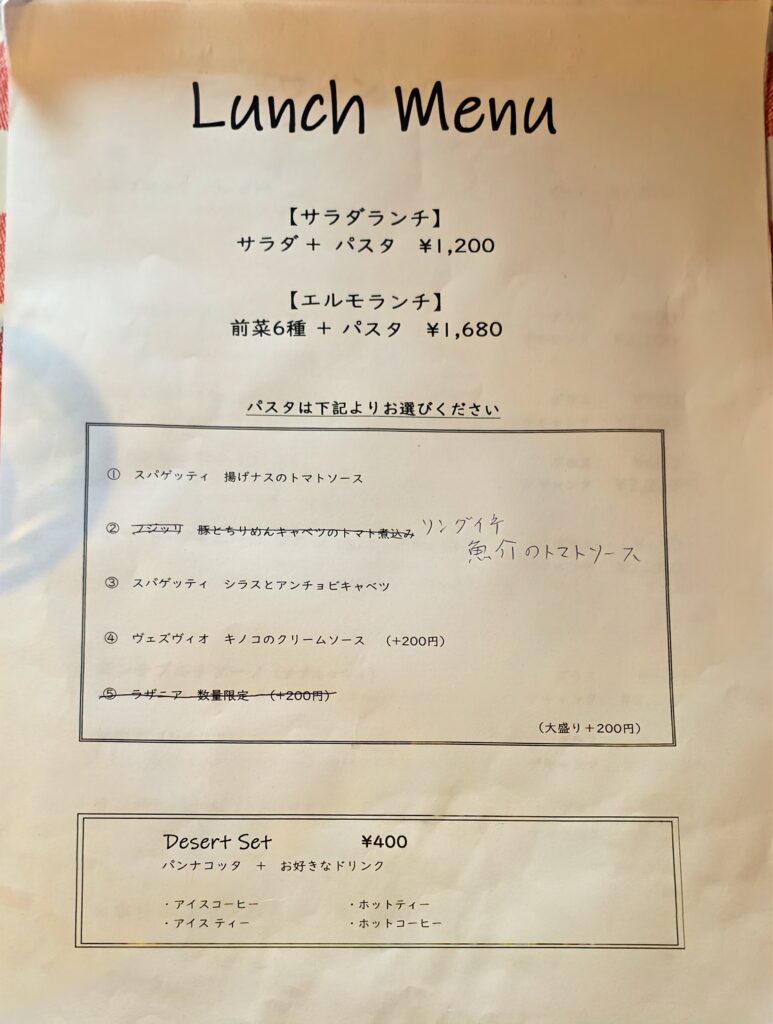 Lunch Menu
【サラダランチ】
サラダ + パスタ ¥1,200
【エルモランチ】
前菜6種 + パスタ ¥1,680
パスタは下記よりお選びください
① スパゲッティ 揚げナスのトマトソース
② フジッリ 豚とちりめんキャベツのトマト煮込み リングイネ
魚介のトマトソース
③ スパゲッティ シラスとアンチョビキャベツ
④ ヴェズヴィオ キノコのクリームソース (+200円)
⑤ ラザニア 数量限定 (+200円)
(大盛り+200円)
Desert Set ¥400
パンナコッタ + お好きなドリンク
・アイスコーヒー ・ホットティー
・アイス ティー ・ホットコーヒー